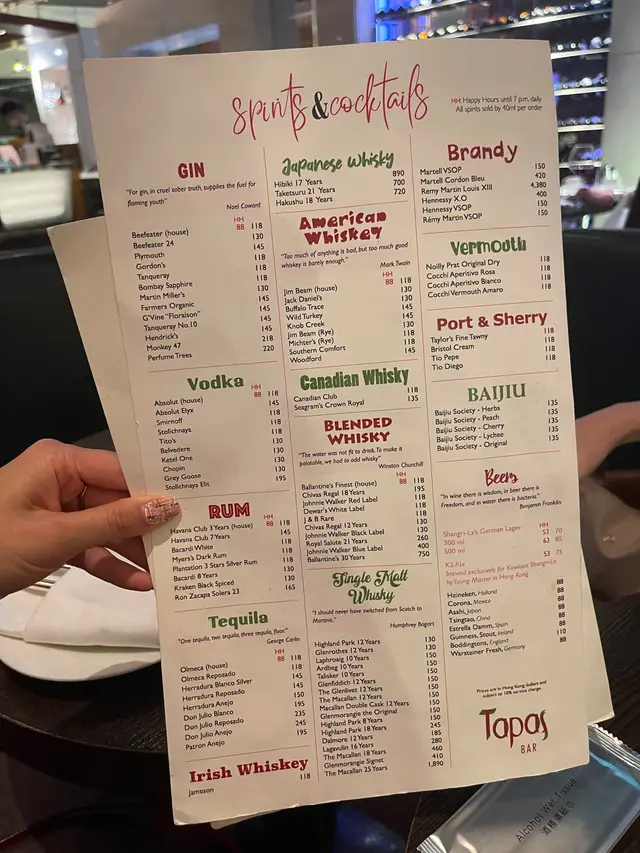 spirits & cocktails
HH: Happy Hours until 7 p.m. daily
All spirits sold by 40ml per order
GIN
"For gin, in cruel sober truth, supplies the fuel for
flaming youth"
Noel Coward
HH
Beefeater (house) 88 118
Beefeater 24 130
Plymouth 145
Gordon's 118
Tanqueray 118
Bombay Sapphire 118
Martin Miller's 130
Farmers Organic 145
G'Vine "Floraison" 145
Tanqueray No.10 145
Hendrick's 145
Monkey 47 218
Perfume Trees 220
Vodka
HH
Absolut (house) 88 118
Absolut Elyx 145
Smirnoff 118
Stolichnaya 118
Tito's 118
Belvedere 130
Ketel One 130
Chopin 130
Grey Goose 130
Stolichnaya Elit 195
RUM
HH
Havana Club 3 Years (house) 88 118
Havana Club 7 Years 145
Bacardi White 118
Myers's Dark Rum 118
Plantation 3 Stars Silver Rum 130
Bacardi 8 Years 130
Kraken Black Spiced 130
Ron Zacapa Solera 23 165
Tequila
"One tequila, two tequila, three tequila, floor"
George Carlin
HH
Olmeca (house) 88 118
Olmeca Reposado 118
Herradura Blanco Silver 145
Herradura Reposado 145
Herradura Anejo 150
Don Julio Blanco 195
Don Julio Reposado 235
Don Julio Anejo 245
Patron Anejo 195
Irish Whiskey
Jameson 118
Japanese Whisky
Hibiki 17 Years 890
Taketsuru 21 Years 700
Hakushu 18 Years 720
American Whiskey
"Too much of anything is bad, but too much good
whiskey is barely enough."
Mark Twain
HH
Jim Beam (house) 88 118
Jack Daniel's 130
Buffalo Trace 130
Wild Turkey 145
Knob Creek 145
Jim Beam (Rye) 130
Michter's (Rye) 118
Southern Comfort 118
Woodford 145
Canadian Whisky
Canadian Club 118
Seagram's Crown Royal 135
BLENDED WHISKY
"The water was not fit to drink. To make it
palatable, we had to add whisky"
Winston Churchill
HH
Ballantine's Finest (house) 88 118
Chivas Regal 18 Years 195
Johnnie Walker Red Label 118
Dewar's White Label 118
J & B Rare 118
Chivas Regal 12 Years 130
Johnnie Walker Black Label 130
Royal Salute 21 Years 260
Johnnie Walker Blue Label 400
Ballantine's 30 Years 750
Single Malt Whisky
"I should never have switched from Scotch to
Martinis."
Humphrey Bogart
Highland Park 12 Years 130
Glenrothes 12 Years 130
Laphroaig 10 Years 150
Ardbeg 10 Years 150
Talisker 10 Years 150
Glenfiddich 12 Years 150
The Glenlivet 12 Years 150
The Macallan 12 Years 150
Macallan Double Cask 12 Years 150
Glenmorangie the Original 150
Highland Park 8 Years 150
Highland Park 18 Years 245
Dalmore 12 Years 185
Lagavulin 16 Years 280
The Macallan 18 Years 460
Glenmorangie Signet 410
The Macallan 25 Years 1,890
Brandy
Martell VSOP 150
Martell Cordon Bleu 420
Remy Martin Louis XIII 4,380
Hennessy X.O 400
Hennessy VSOP 150
Rémy Martin VSOP 150
Vermouth
Noilly Prat Original Dry 118
Cocchi Aperitivo Rosa 118
Cocchi Aperitivo Bianco 118
Cocchi Vermouth Amaro 118
Port & Sherry
Taylor's Fine Tawny 118
Bristol Cream 118
Tio Pepe 118
Tio Diego 118
BAIJIU
Baijiu Society - Herbs 135
Baijiu Society - Peach 135
Baijiu Society - Cherry 135
Baijiu Society - Lychee 135
Baijiu Society - Original 135
Beers
"In wine there is wisdom, in beer there is
Freedom, and in water there is bacteria."
Benjamin Franklin
Shangri-La's German Lager HH
300 ml 53 70
500 ml 63 85
KS Ale 53 75
Brewed exclusively for Kowloon Shangri-La
by Young Master in Hong Kong
Heineken, Holland 88
Corona, Mexico 88
Asahi, Japan 88
Tsingtao, China 88
Estrella Damm, Spain 88
Guinness, Stout, Ireland 88
Boddingtons, England 110
Warsteiner Fresh, Germany 88
Prices are in Hong Kong dollars and
subject to 10% service charge.
Tapas
BAR
Alcohol Wet Tissue
酒精濕紙巾